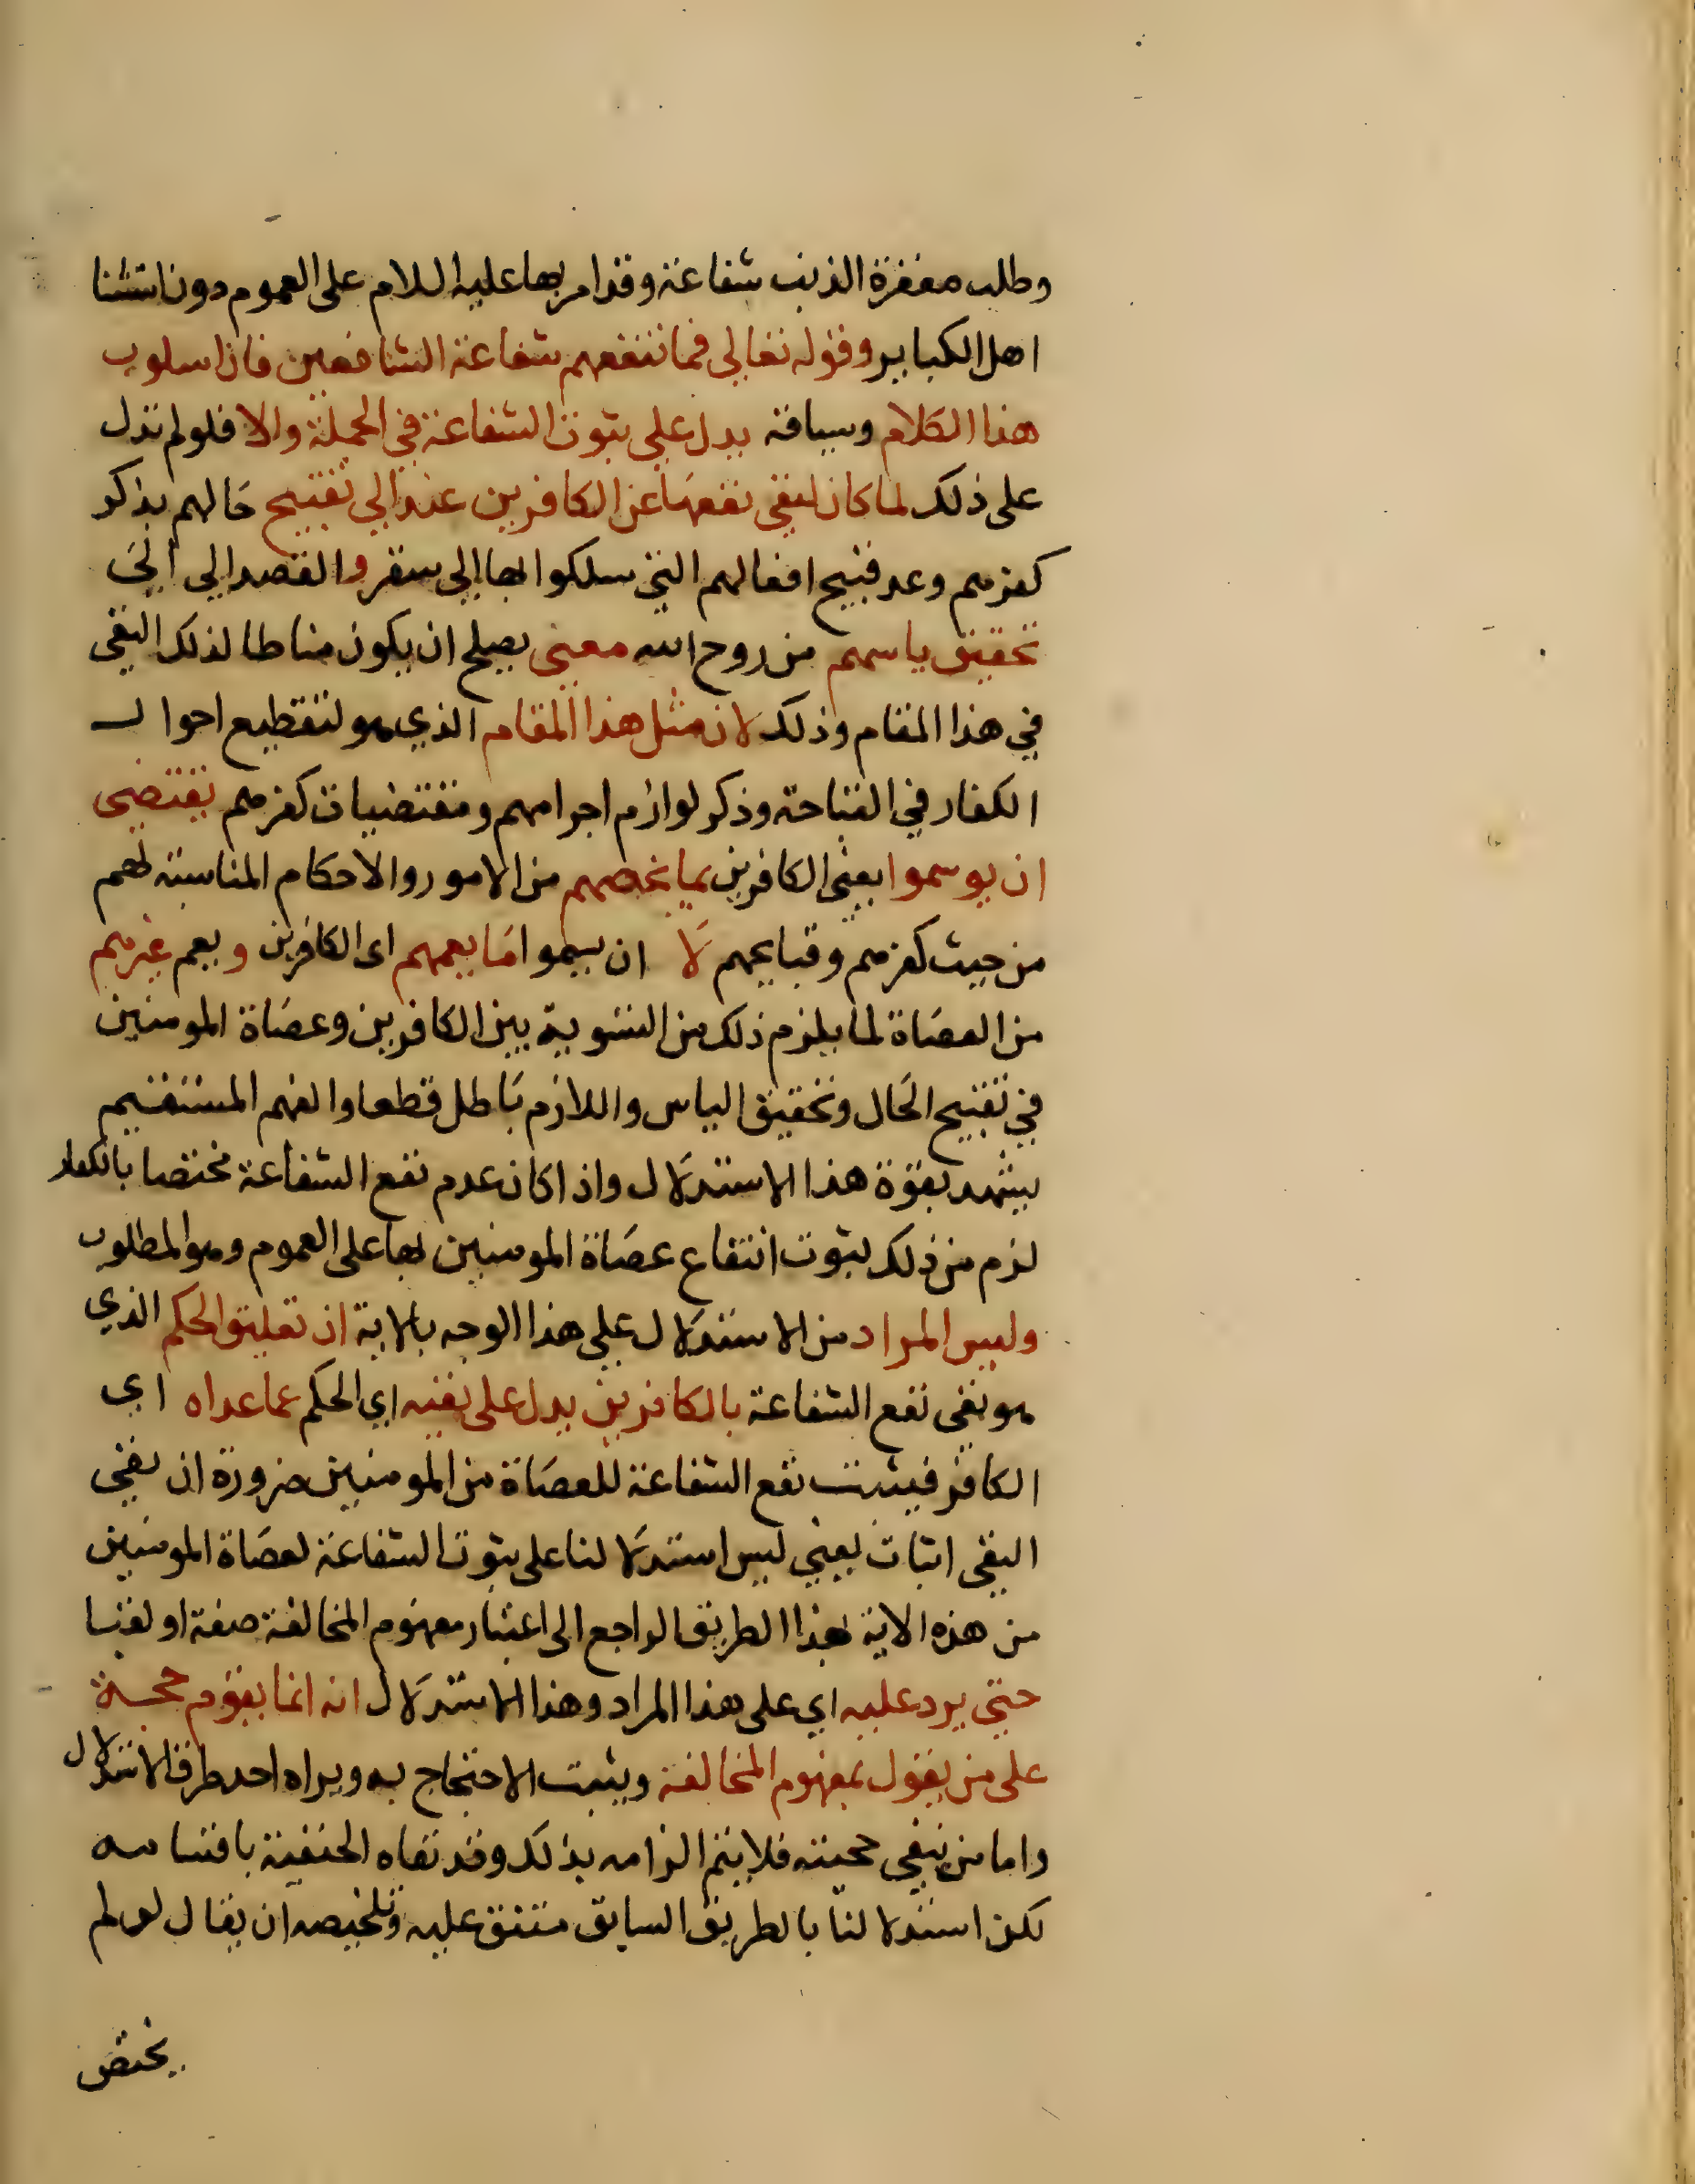 وطلب مغفرة الذنب شفاعة وقد امر بها عليه السلام على العموم دون استثنا
اهل الكباير وقوله تعالى فما تنفعهم شفاعة الشافعين فان اسلوب
هذا الكلام وسياقه يدل على ثبوت الشفاعة في الجملة والا فلو لم تدل
على ذلك لما كان لنفي نفعها عن الكافرين عند الى تقبيح حالهم بذكر
كفرهم وعد قبيح افعالهم التي سلكوا بها الى سقر والقصد الى
تحقيق ياسهم من روح الله معنى يصلح ان يكون مناطا لذلك النفي
في هذا المقام وذلك لان مثل هذا المقام الذي هو لتفظيع احوال
الكفار في القباحة وذكر لوازم اجرامهم ومقتضيات كفرهم يقتضى
ان يوسموا يعنى الكافرين بما يخصهم من الامور والاحكام المناسبة لهم
من حيث كفرهم وقبايحهم لا ان يسموا ما يعمهم اى الكافرين ويعم غيرهم
من العصاة لما يلزم ذلك من التسوية بين الكافرين وعصاة المومنين
في تقبيح الحال وتحقيق الياس واللازم باطل قطعا والفهم المستقيم
يشهد بقوة هذا الاستدلال واذا كان عدم نفع الشفاعة مختصا بالكفار
لزم من ذلك ثبوت انتفاع عصاة المومنين بها على العموم وهو المطلوب
وليس المراد من الاستدلال على هذا الوجه بالاية ان تعليق الحكم الذي
هو نفى نفع الشفاعة بالكافرين يدل على نفيه اي الحكم عما عداه اي
الكافر فيثبت نفع الشفاعة للعصاة من المومنين ضرورة ان نفي
النفى اثبات يعني ليس استدلالنا على ثبوت الشفاعة لعصاة المومنين
من هذه الاية بهذا الطريق الراجع الى اعتبار مفهوم المخالفة صفة او لقبا
حتى يرد عليه اي على هذا المراد وهذا الاستدلال انه انما يقوم حجة
على من يقول بمفهوم المخالفة ويثبت الاحتجاج به ويراه احد طرق الاستدلال
واما من ينفي حجيته فلا يتم الزامه بذلك وقد نفاه الحنفية باقسامه
لكن استدلالنا بالطريق السابق متفق عليه وتلخيصه ان يقال لو لم
يختص